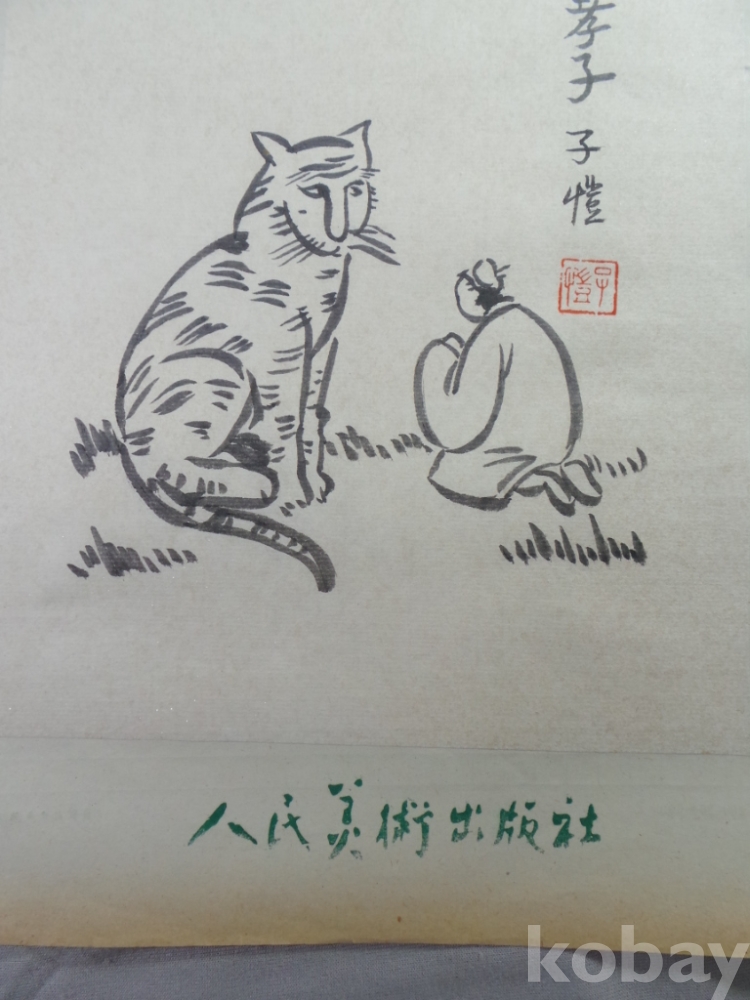 孝子
子愷
子愷
人民美術出版社
kobay